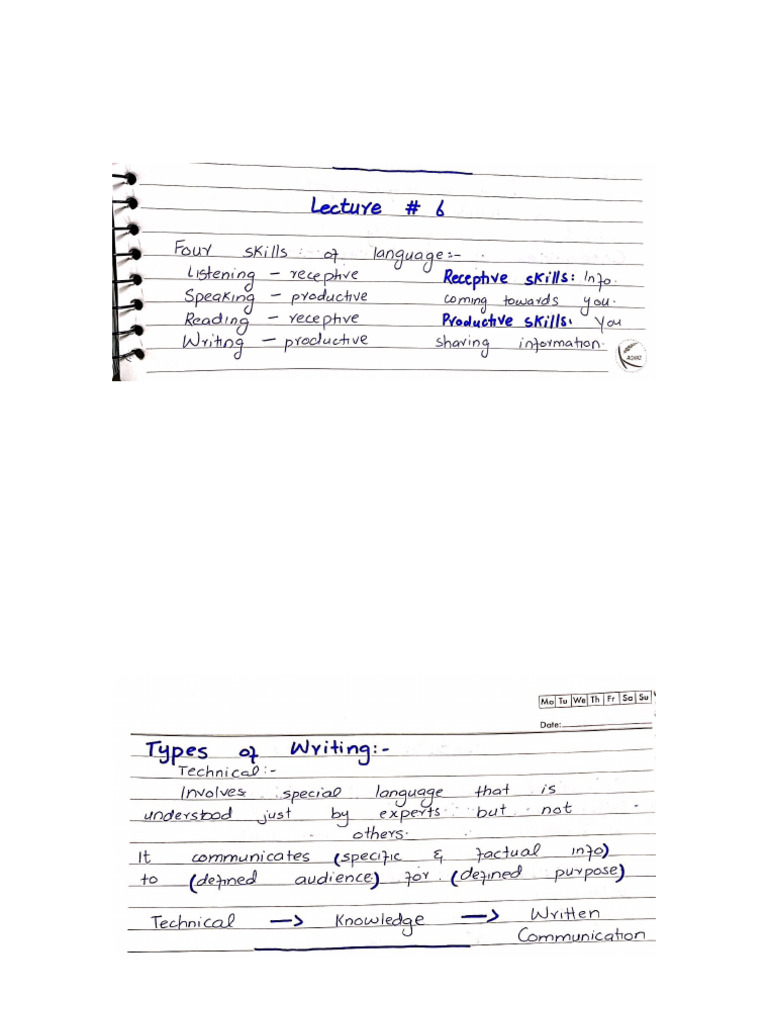 Lecture # 6
Four skills of language:-
Listening – receptive Receptive skills: Info.
Speaking – productive coming towards you.
Reading – receptive Productive skills. You
Writing – productive sharing information.
Mo Tu We Th Fr Sa Su
Date:
Types of Writing:-
Technical:-
Involves special language that is
understood just by experts but not
others.
It communicates (specific & factual info)
to (defined audience) for (defined purpose)
Technical —> Knowledge —> Written
Communication